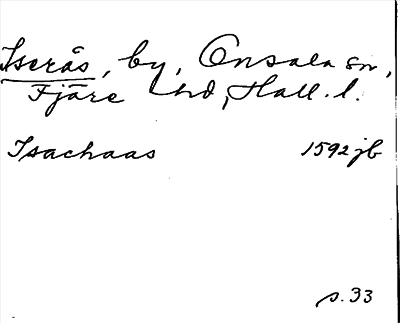 Iserås, by, Onsala sn,
Fjäre hd, Hall. l.
Isachaas 1592 jb
s. 33